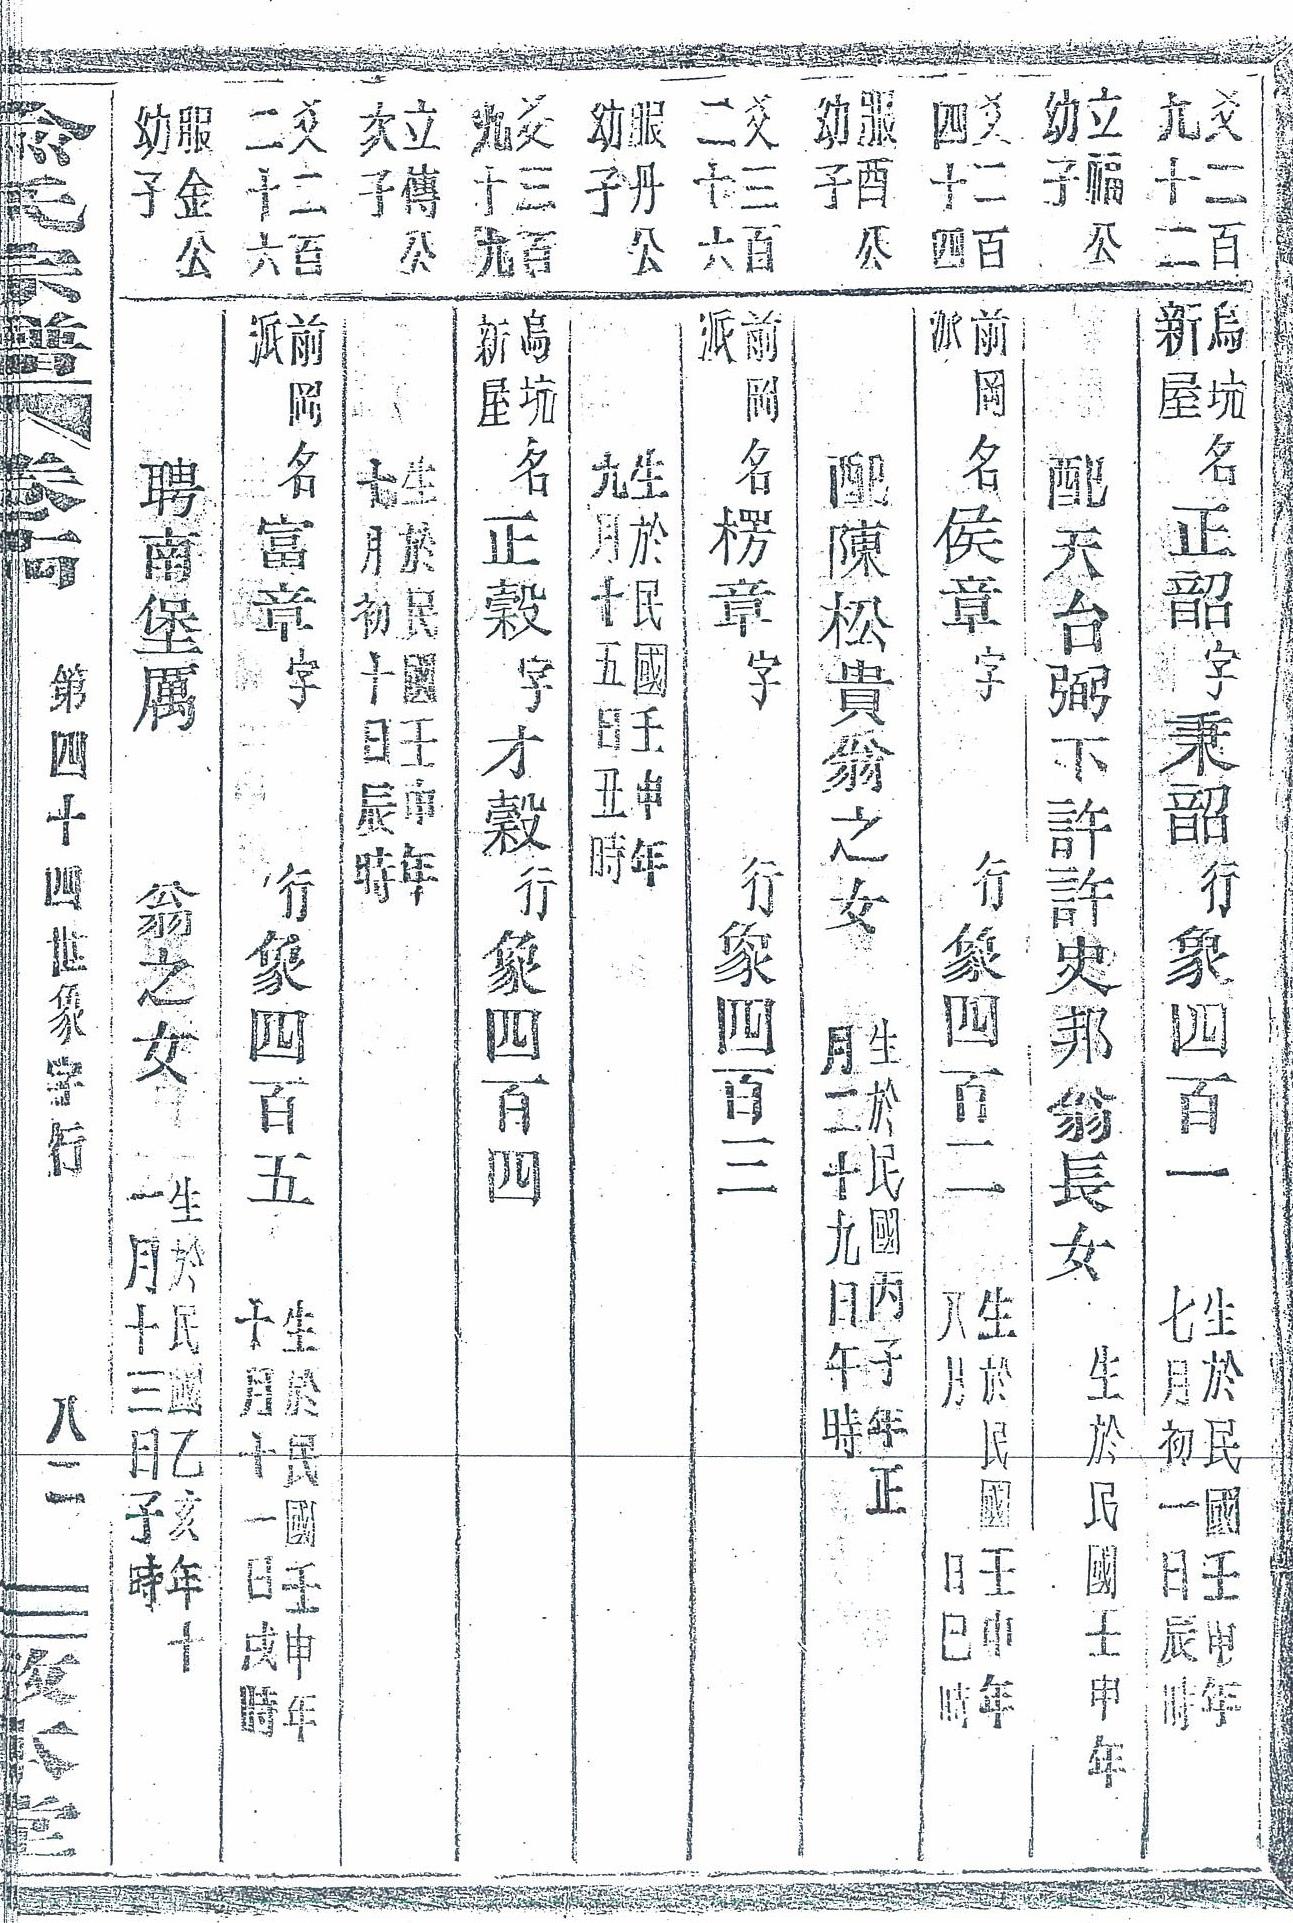 爻二百九十二
立福公幼子
烏坑新屋名正韶字秉韶行象四百一
生於民國壬申年七月初一日辰時
配天台弼下許許史邦翁長女
生於民國壬申年
爻二百四十四
服酉公幼子
前岡派名侯章字 行象四百二
生於民國壬申年八月 日巳時
配陳松貴翁之女
生於民國丙子年正月二十九日午時
爻三百二十六
服丹公幼子
前岡派名楞章字 行象四百三
生於民國壬申年九月十五日丑時
爻三百九十九
立傳公次子
烏坑新屋名正穀字才穀行象四百四
生於民國壬申年七月初十日辰時
爻二百二十六
服金公幼子
前岡派名富章字 行象四百五
生於民國壬申年十月十一日戌時
聘南堡厲 翁之女
生於民國乙亥年十一月十三日子時
俞氏宗譜 卷 第四十四世象字行 八二 本堂